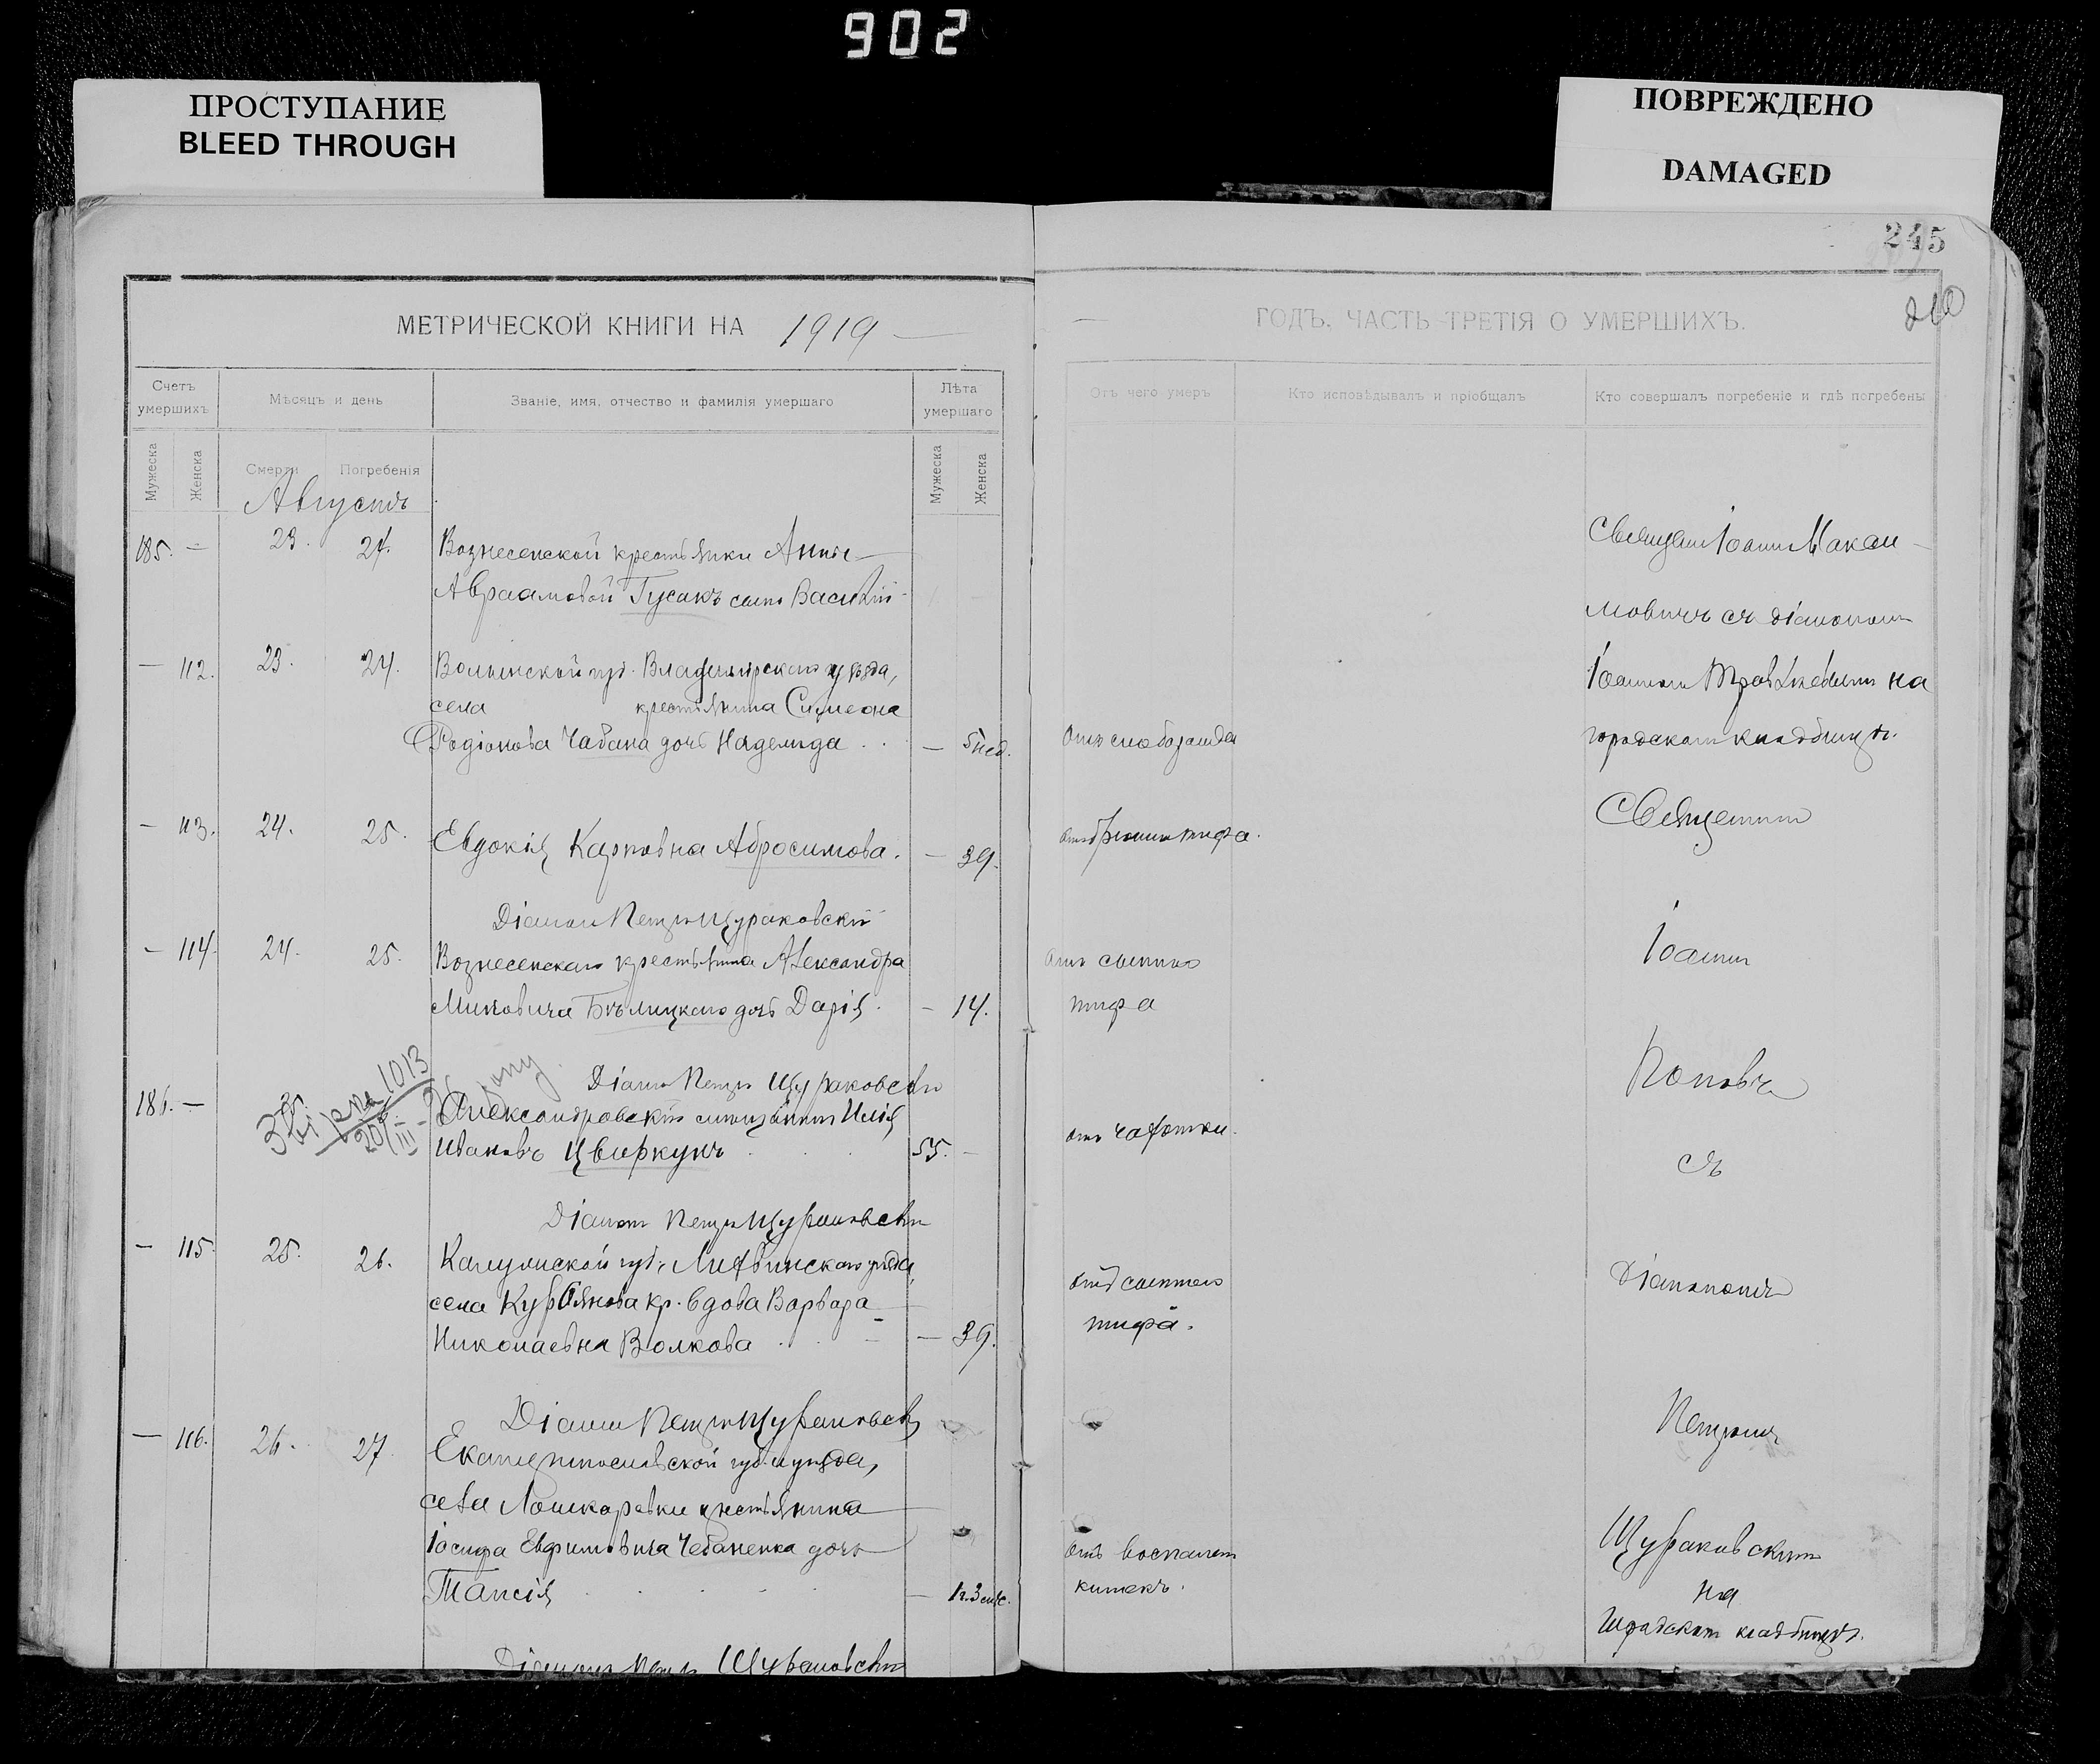 902
ПРОСТУПАНИЕ
BLEED THROUGH
ПОВРЕЖДЕНО
DAMAGED
245
210
МЕТРИЧЕСКОЙ КНИГИ НА 1919
ГОДЪ, ЧАСТЬ ТРЕТІЯ О УМЕРШИХЪ.
Счетъ умершихъ
Мѣсяцъ и день
Званіе, имя, отчество и фамилія умершаго
Лѣта умершаго
Отъ чего умеръ
Кто исповѣдывалъ и пріобщалъ
Кто совершалъ погребеніе и гдѣ погребены
Мужеска
Женска
Смерти
Погребенія
Мужеска
Женска
Августъ
185. — 23. 24. Вознесенской крестьянки Анны
Авраамовой Гусакъ сынъ Василій
Священ Іоаннъ Макси-
мовичъ съ діакономъ
— 112. 23. 24. Волынской губ. Владимірскаго уѣзда,
села крестьянина Симеона
Родіонова Чабана дочь Надежда — 5 нед.
Іоанномъ на
городскомъ кладбищѣ.
— 113. 24. 25. Евдокія Карповна Абросимова. — 39.
отъ брюшн тифа.
Священникъ
Діаконъ Петръ Щураковскій
— 114. 24. 25. Вознесенскаго крестьянина Александра
Миновича Бѣлицкаго дочь Дарія. — 14.
отъ сыпного
тифа
Іоаннъ
Поповъ
Діаконъ Петръ Щураковскій
1013
186. — Александровскій мѣщанинъ Илія
Ивановъ Цвиркунъ 55. —
отъ чахотки.
съ
Діаконъ Петръ Щураковскій
— 115. 25. 26. Калужской губ. Лихвинскаго уѣзда,
села Курбянова кр. вдова Варвара
Николаевна Волкова — 39.
отъ сыпного
тифа.
Діакономъ
Діаконъ Петръ Щураковскій
— 116. 26. 27. Екатеринославской губ. и уѣзда,
села Лошкаревки крестьянина
Іосифа Евфимовича Чебаненка дочь
Таисія — 1 г. 3 мѣс.
отъ воспален
кишекъ.
Петромъ
Щураковскимъ
на
городскомъ кладбищѣ.
Діаконъ Петръ Щураковскій